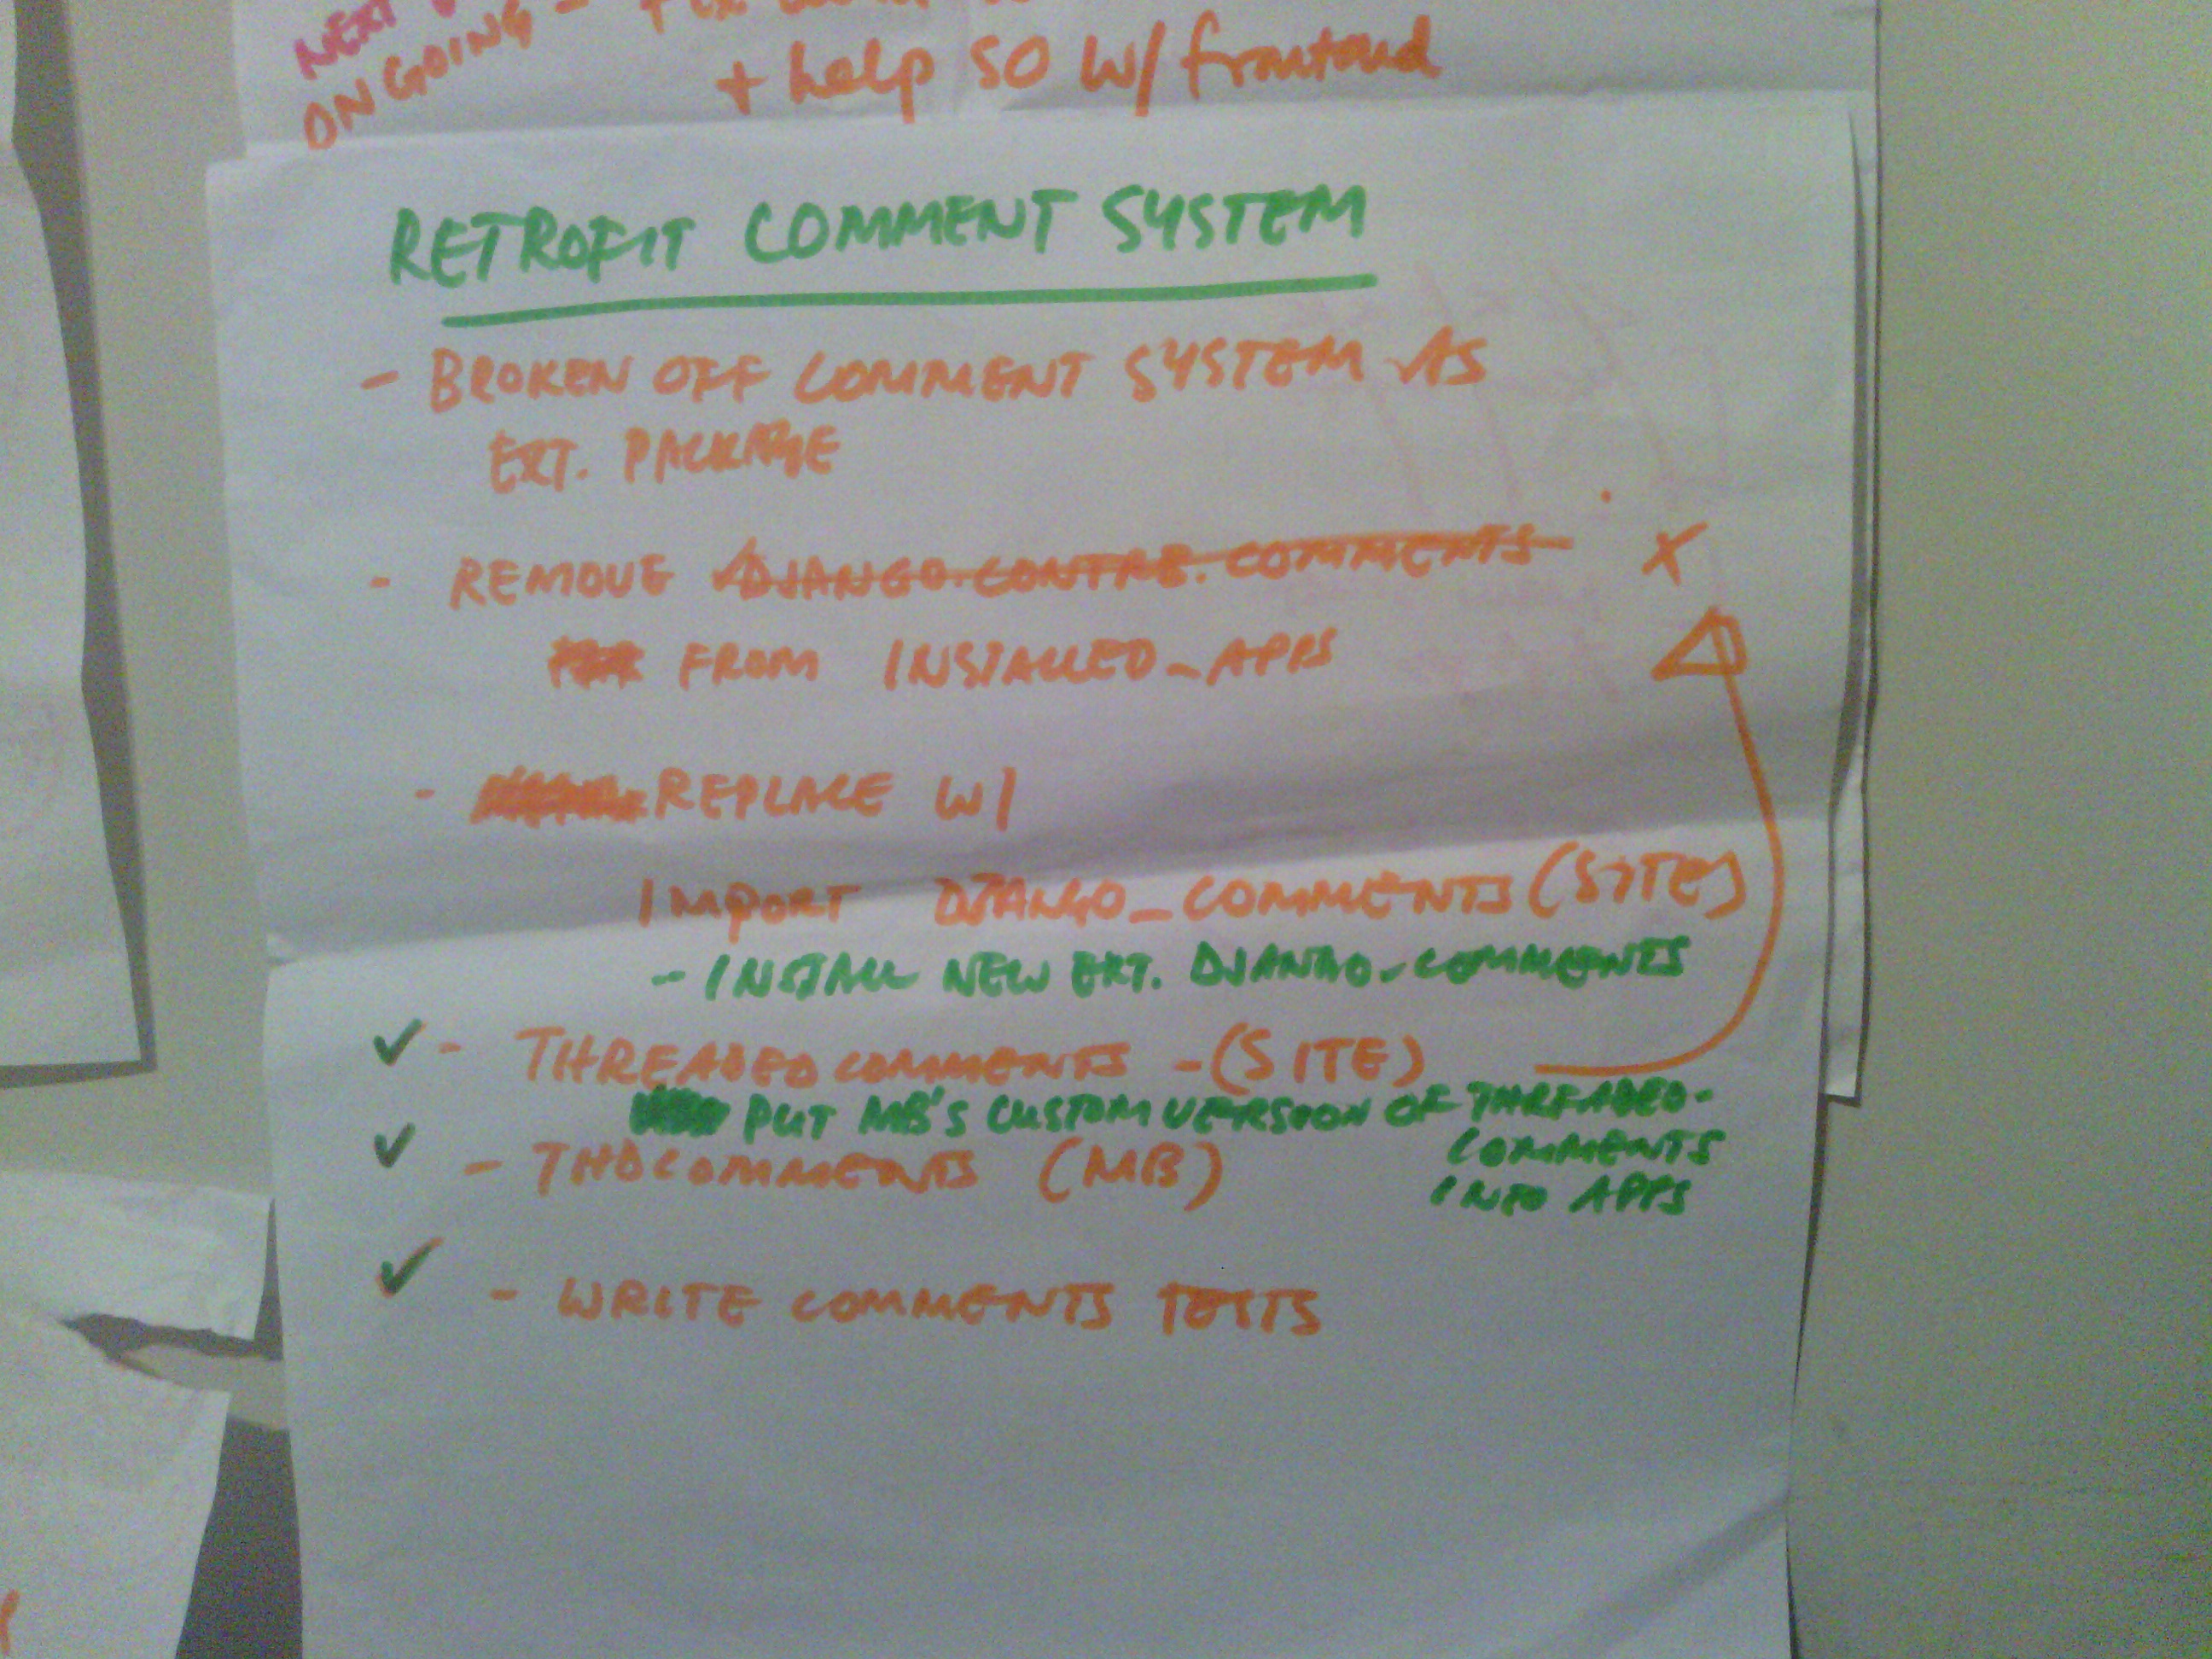 NEXT
ONGOING -
+ help SO W/ frontend
RETROFIT COMMENT SYSTEM
- BROKEN OFF COMMENT SYSTEM AS
EXT. PACKAGE
- REMOVE DJANGO.CONTRB.COMMENTS X
FROM INSTALLED_APPS
- REPLACE W/
IMPORT DJANGO_COMMENTS (SITE)
- INSTALL NEW EXT. DJANGO-COMMENTS
✓ - THREADEDCOMMENTS - (SITE)
PUT MB'S CUSTOM VERSION OF THREADED-
COMMENTS
INTO APPS
✓ - THDCOMMENTS (MB)
✓ - WRITE COMMENTS TESTS